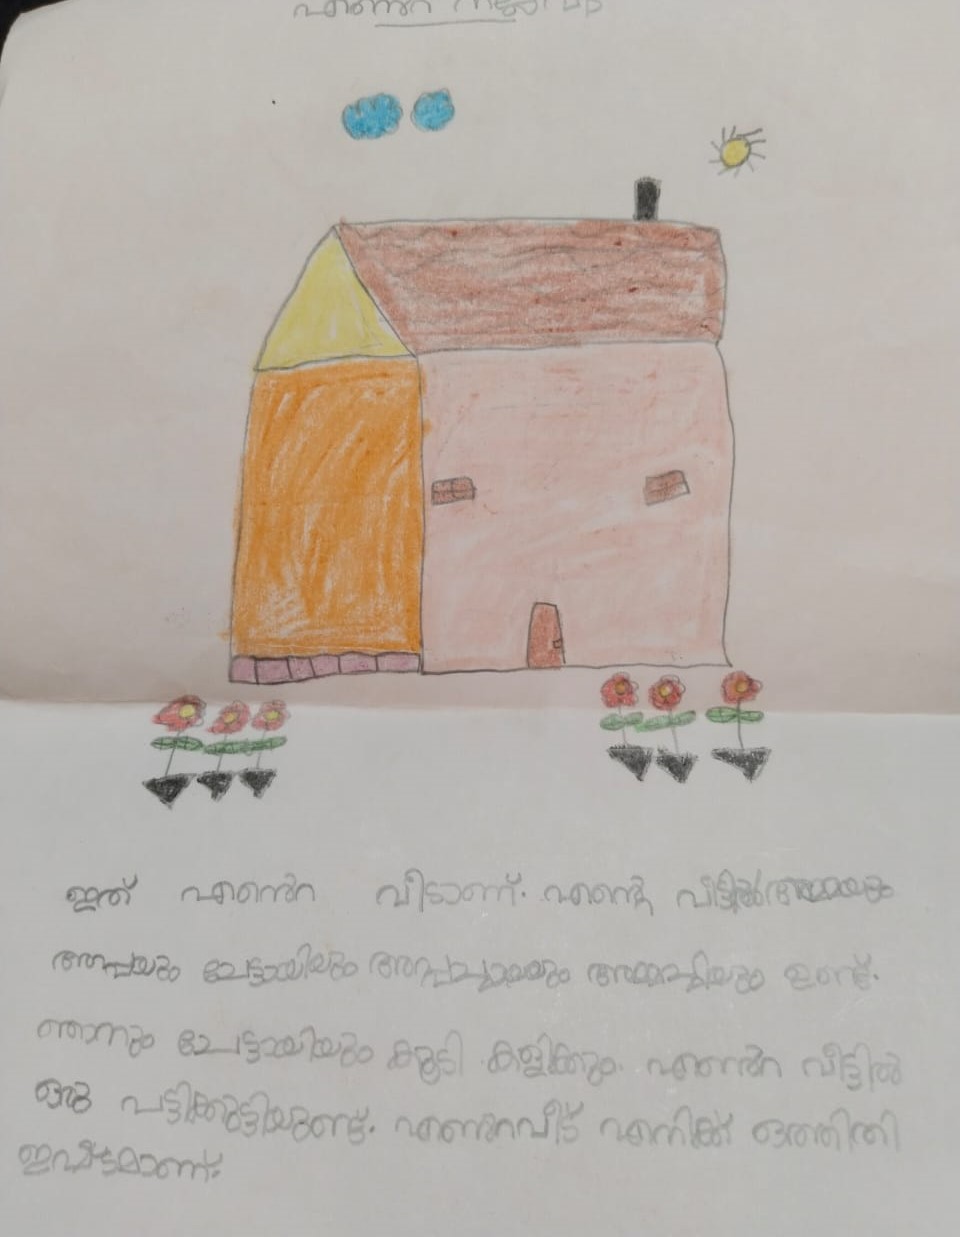 എന്റെ
ഇത് എന്റെ വീടാണ്. എന്റെ വീട്ടിൽ അമ്മയും
അപ്പയും ചേട്ടായിയും അപ്പച്ചനും അമ്മച്ചിയും ഉണ്ട്.
ഞാനും ചേട്ടായിയും കൂടി കളിക്കും. എന്റെ വീട്ടിൽ
ഒരു പട്ടിക്കുട്ടിയുണ്ട്. എന്റെവീട് എനിക്ക് ഒത്തിരി
ഇഷ്ടമാണ്.